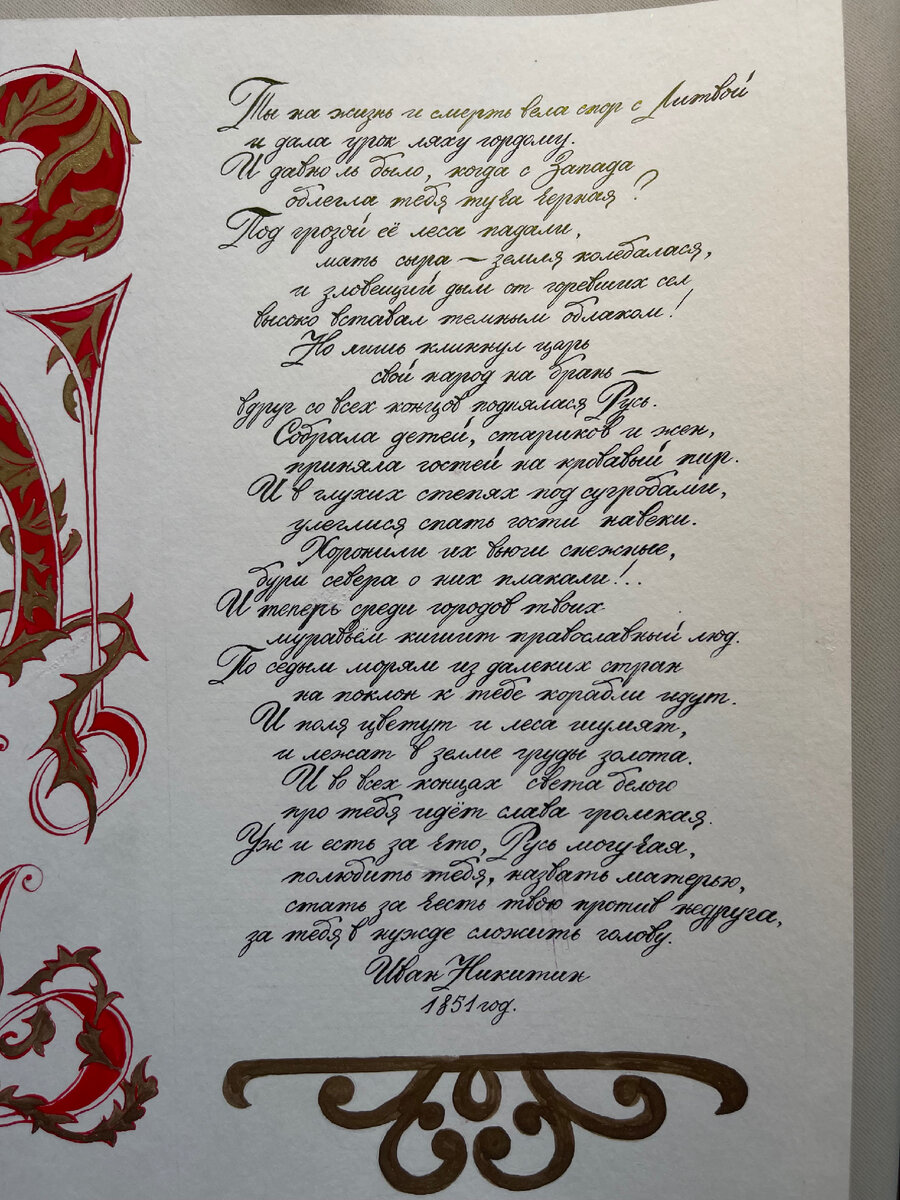 Ты на жизнь и смерть вела спор с Литвой
и дала урок ляху гордому.
И давно ль было, когда с Запада
облегла тебя туча черная?
Под грозой её леса падали,
мать сыра — земля колебалася,
и зловещий дым от горевших сел
высоко вставал темным облаком!
Но лишь кликнул царь
свой народ на брань —
вдруг со всех концов поднялася Русь.
Собрала детей, стариков и жен,
приняла гостей на кровавый пир.
И в глухих степях под сугробами,
улеглися спать гости навеки.
Хоронили их вьюги снежные,
бури севера о них плакали!..
И теперь среди городов твоих
муравьём кишит православный люд.
По седым морям из далеких стран
на поклон к тебе корабли идут.
И поля цветут и леса шумят,
и лежат в земле груды золота.
И во всех концах света белого
про тебя идёт слава громкая.
Уж и есть за что, Русь могучая,
полюбить тебя, назвать матерью,
стать за честь твою против недруга,
за тебя в нужде сложить голову.
Иван Никитин
1851 год.